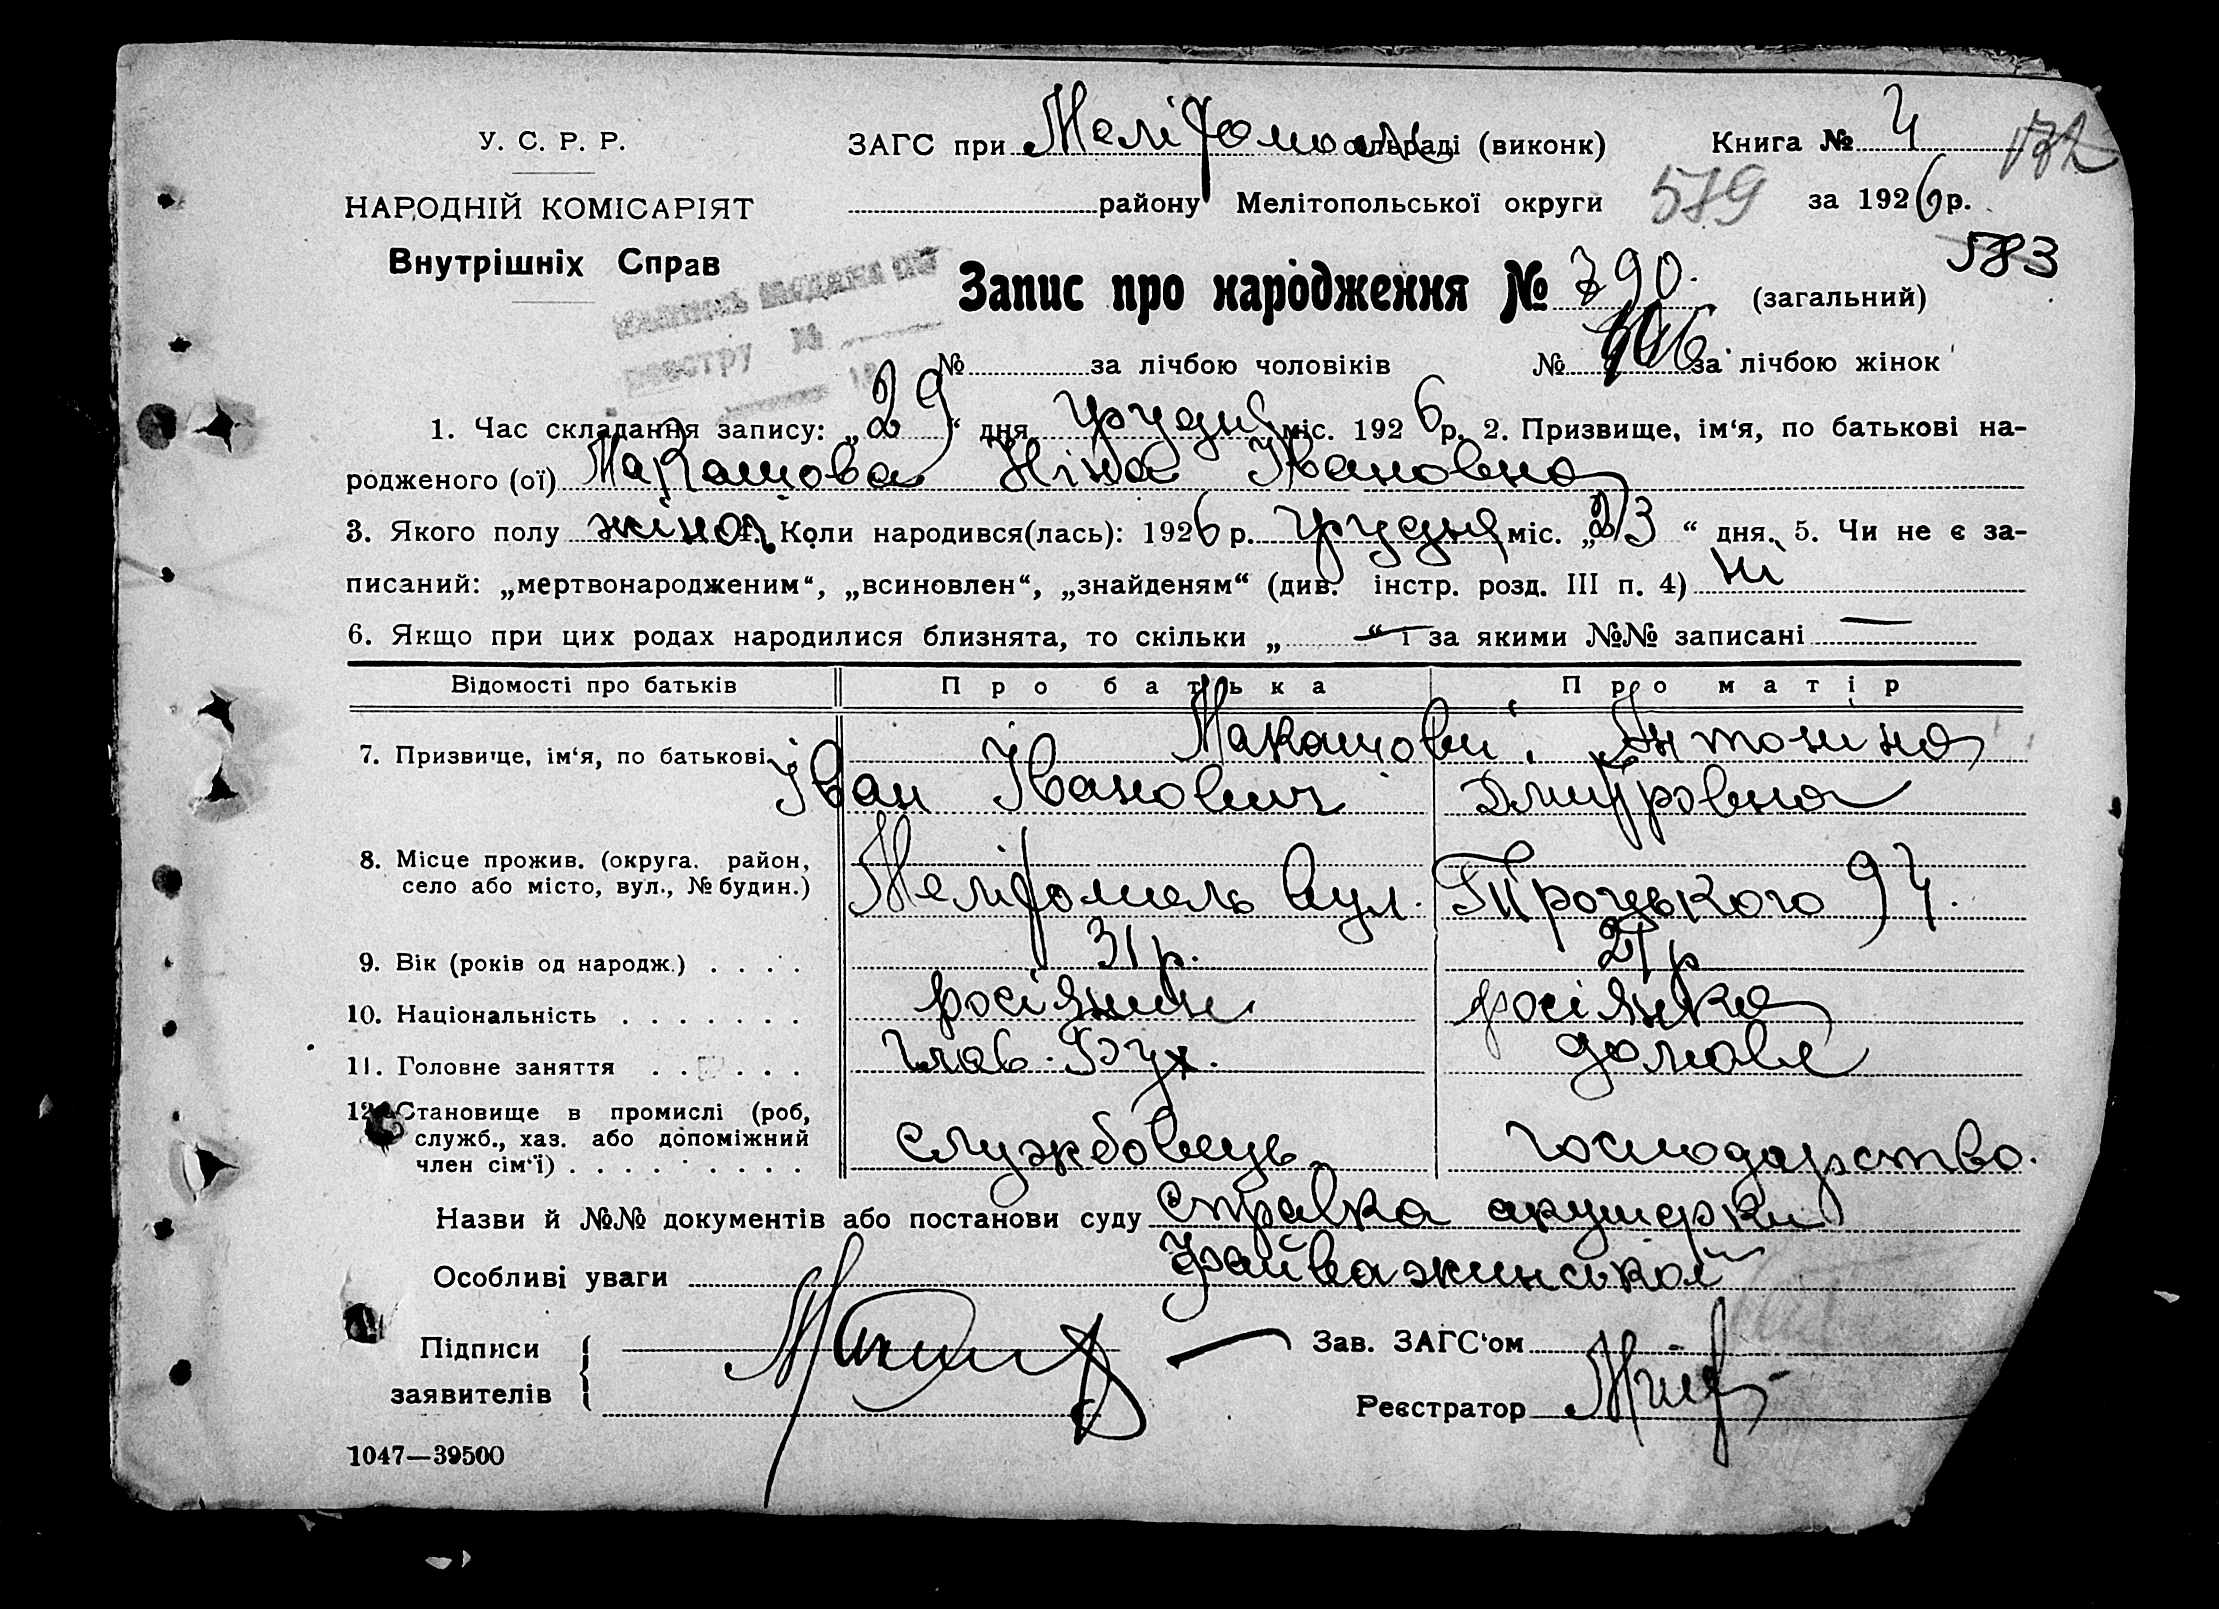 У. С. Р. Р.
НАРОДНІЙ КОМІСАРІЯТ
Внутрішніх Справ
ЗАГС при Меліто сільраді (виконк)
Книга № 4
району Мелітопольської округи 579 за 1926 р.
583
Запис про народження № 790. (загальний)
№ за лічбою чоловіків № за лічбою жінок
реєстру №
1. Час складання запису: „29“ дня грудня міс. 1926 р. 2. Призвище, ім‘я, по батькові на-
родженого (ої) Макашова Ніна Івановна
3. Якого полу жіноч. 4. Коли народився(лась): 1926 р. грудня міс. „23“ дня. 5. Чи не є за-
писаний: „мертвонародженим“, „всиновлен“, „знайденям“ (див. інстр. розд. III п. 4) ні
6. Якщо при цих родах народилися близнята, то скільки „—“ і за якими №№ записані —
Відомості про батьків Про батька Про матір
7. Призвище, ім‘я, по батькові Макашови Антонина
Іван Іванович Дмитровна
8. Місце прожив. (округа, район,
село або місто, вул., № будин.) Мелітополь вул. Троцького 94.
9. Вік (років од народж.) . . . . 31 р. 21 р
10. Національність . . . . . . . росіянин. росіянка
11. Головне заняття . . . . . . глав. Бух. домове
12. Становище в промислі (роб,
служб., хаз. або допоміжний службовець господарство.
член сім‘ї) . . . . . . . . . .
Назви й №№ документів або постанови суду справка акушерки
Особливі уваги Файважинської
Підписи
заявителів
Зав. ЗАГС‘ом
Реєстратор
1047—39500